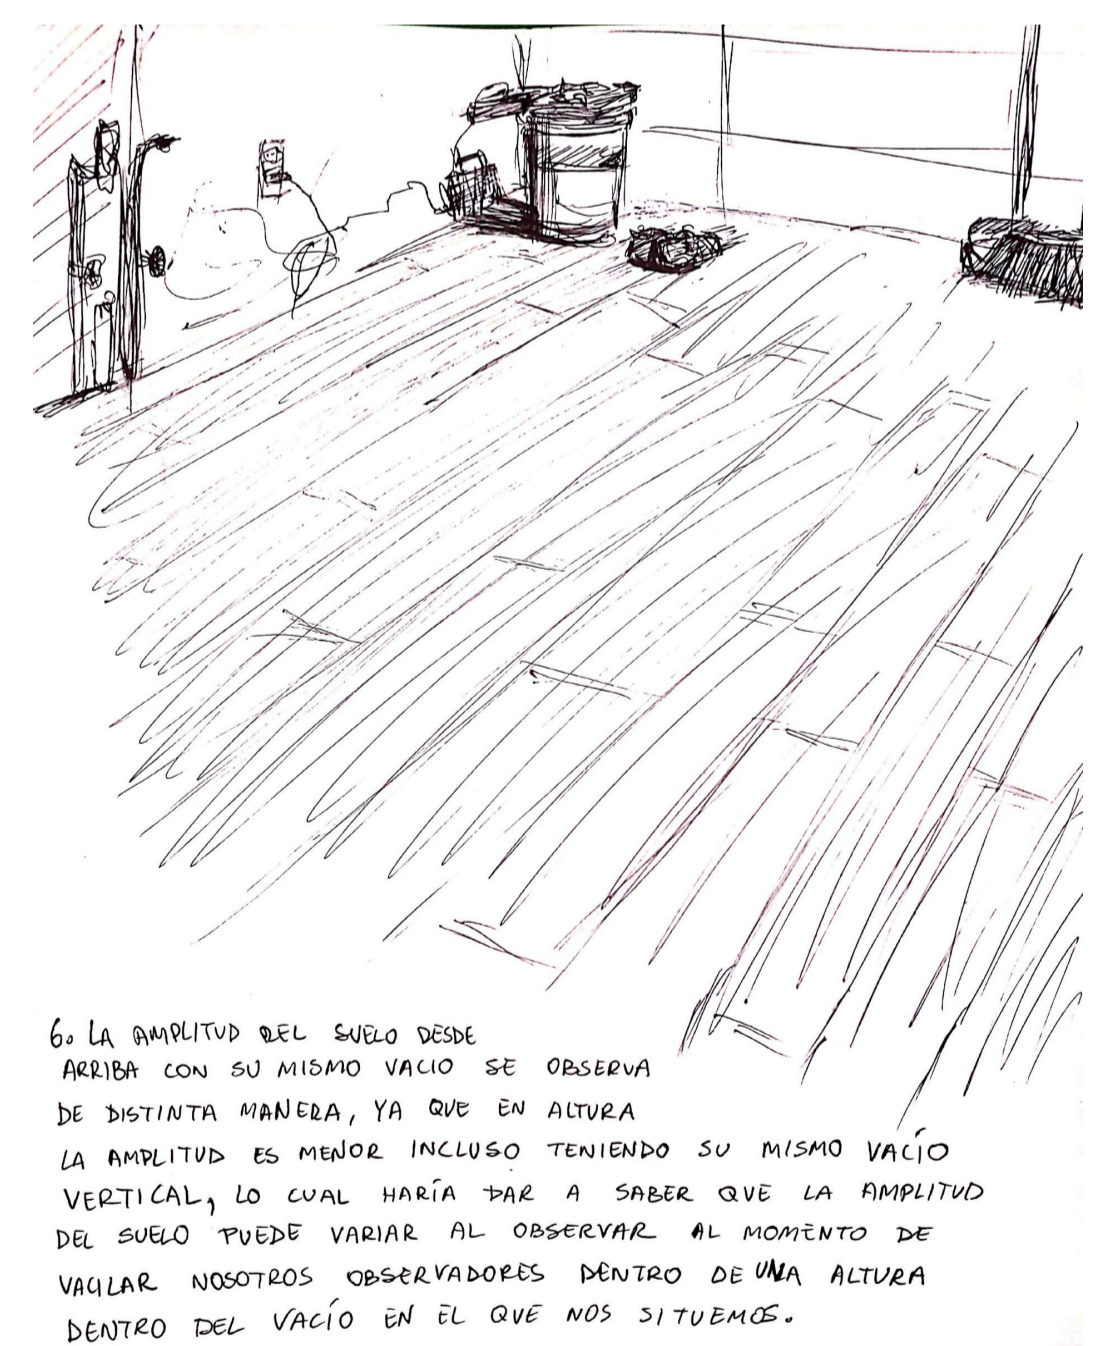 6. LA AMPLITUD DEL SUELO DESDE
ARRIBA CON SU MISMO VACIO SE OBSERVA
DE DISTINTA MANERA, YA QUE EN ALTURA
LA AMPLITUD ES MENOR INCLUSO TENIENDO SU MISMO VACÍO
VERTICAL, LO CUAL HARÍA DAR A SABER QUE LA AMPLITUD
DEL SUELO PUEDE VARIAR AL OBSERVAR AL MOMENTO DE
VACILAR NOSOTROS OBSERVADORES DENTRO DE UNA ALTURA
DENTRO DEL VACÍO EN EL QUE NOS SITUEMOS.